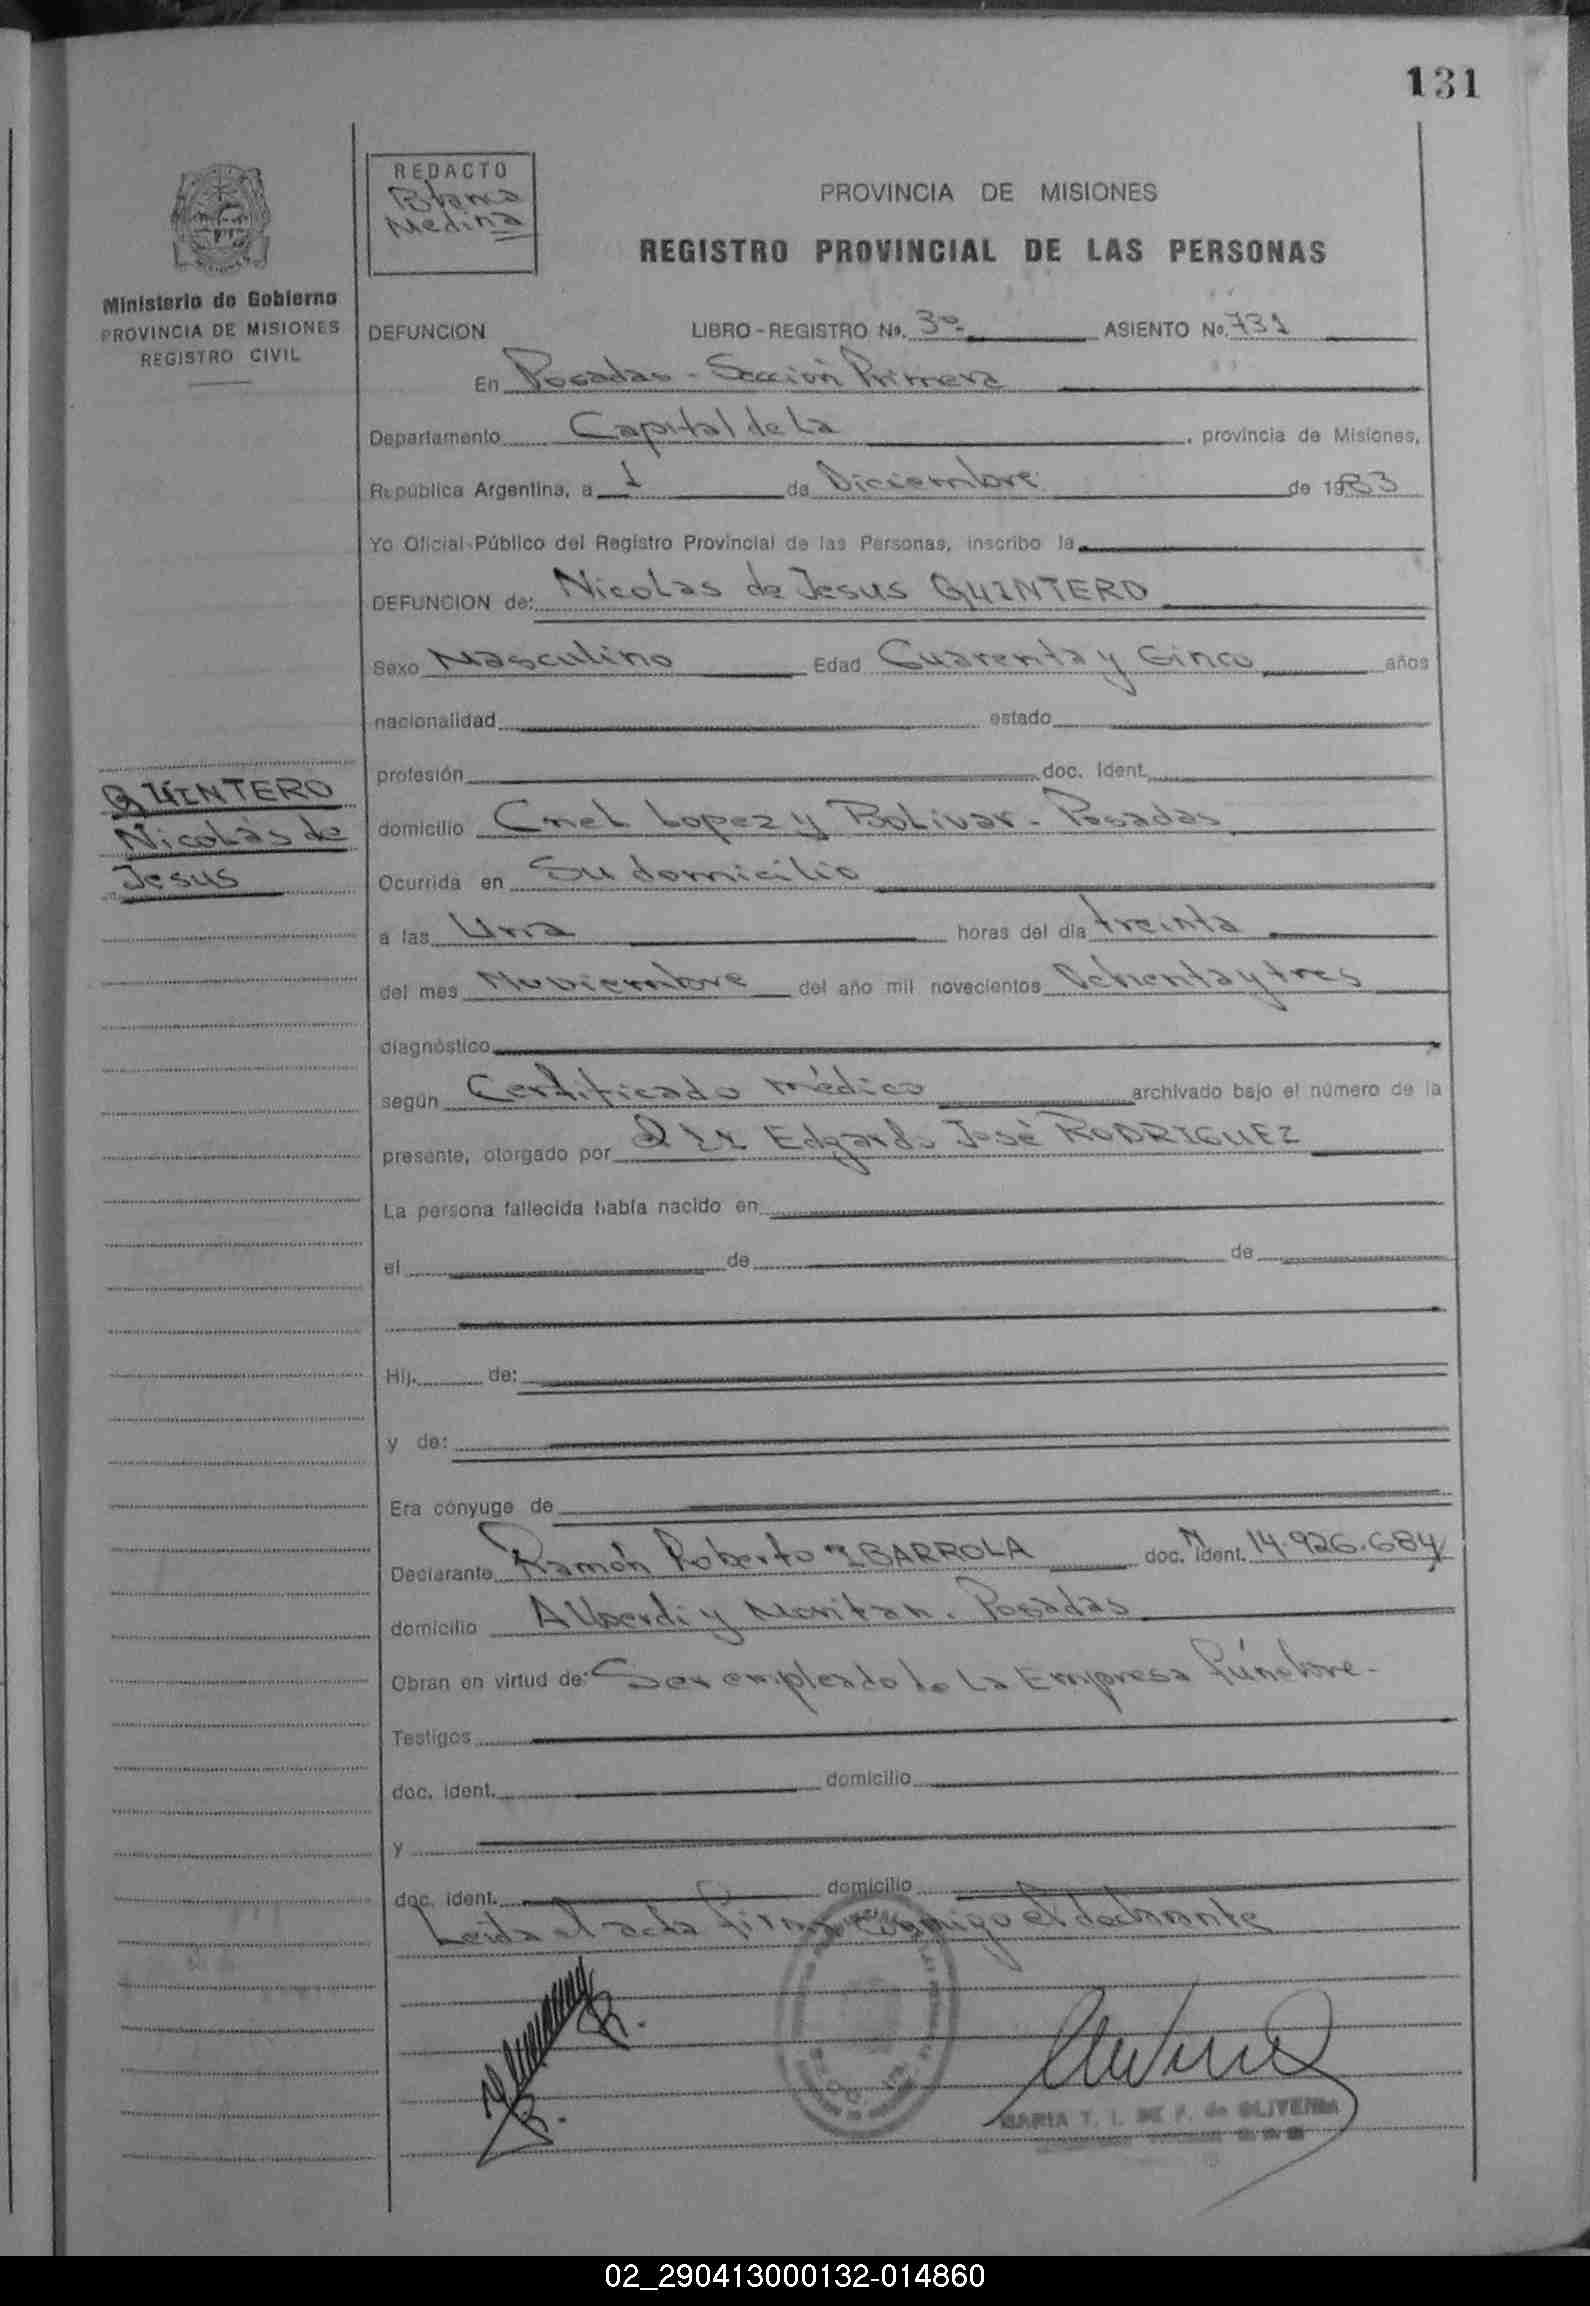 131
REDACTO
Blanca
Medina
PROVINCIA DE MISIONES
REGISTRO PROVINCIAL DE LAS PERSONAS
Ministerio de Gobierno
PROVINCIA DE MISIONES
REGISTRO CIVIL
DEFUNCION LIBRO - REGISTRO No. 3º ASIENTO No. 731
En Posadas - Sección Primera
Departamento Capital de La, provincia de Misiones,
República Argentina, a 1 de Diciembre de 1983
Yo Oficial Público del Registro Provincial de las Personas, inscribo la
DEFUNCION de: Nicolas de Jesus QUINTERO
Sexo Masculino Edad Cuarenta y Cinco años
nacionalidad estado
profesión doc. ident.
QUINTERO
Nicolás de
Jesus
domicilio Cnel Lopez y Bolivar - Posadas
Ocurrida en Su domicilio
a las Una horas del día treinta
del mes Noviembre del año mil novecientos Ochenta y tres
diagnóstico
según Certificado médico archivado bajo el número de la
presente, otorgado por Edgardo José RODRIGUEZ
La persona fallecida había nacido en
el de de
Hij. de:
y de:
Era cónyuge de
Declarante Ramón Roberto IBARROLA doc. ident. 14.926.684
domicilio Alberdi y Moritan. Posadas
Obran en virtud de: Ser empleado de La Empresa fúnebre.
Testigos
doc. ident. domicilio
y
doc. ident. domicilio
Leida el acta firma conmigo el declarante
MARIA T. I. DE F. de OLIVEIRA
02_290413000132-014860